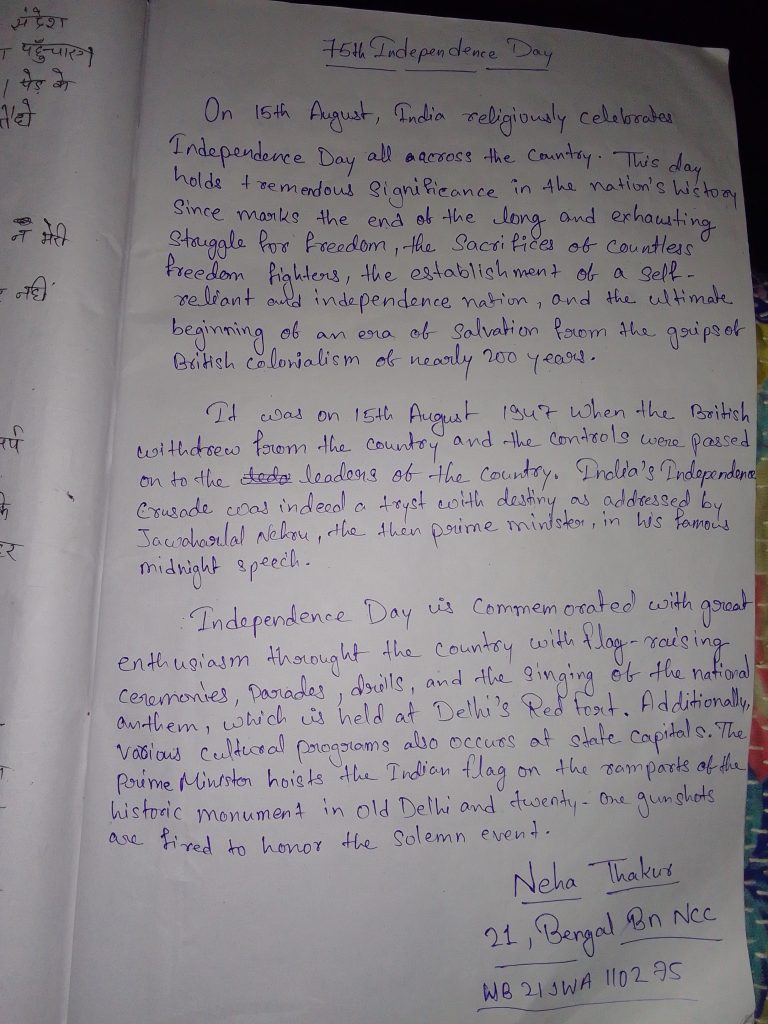 संदेश
पहुँचाएग
पेड़ के
मेरी
नहीं
75th Independence Day
On 15th August, India religiously celebrates
Independence Day all aacross the Country. This day
holds tremendous Significance in the nation's history
Since marks the end of the long and exhausting
Struggle for freedom, the Sacrifices of Countless
freedom fighters, the establishment of a Self-
reliant and independence nation, and the ultimate
beginning of an era of Salvation from the grips of
British colonialism of nearly 200 years.
It was on 15th August 1947 when the British
withdrew from the country and the controls were passed
on to the leaders of the Country. India's Independence
Crusade was indeed a tryst with destiny as addressed by
Jawaharlal Nehru, the then prime minister, in his famous
midnight speech.
Independence Day is Commemorated with great
enthusiasm throught the country with flag-raising
Ceremonies, parades, drills, and the Singing of the national
anthem, which is held at Delhi's Red fort. Additionally,
Various cultural programs also occurs at state capitals. The
Prime Minister hoists the Indian flag on the ramparts of the
historic monument in old Delhi and twenty-one gunshots
are fired to honor the Solemn event.
Neha Thakur
21, Bengal Bn NCC
WB 21 SWA 110275